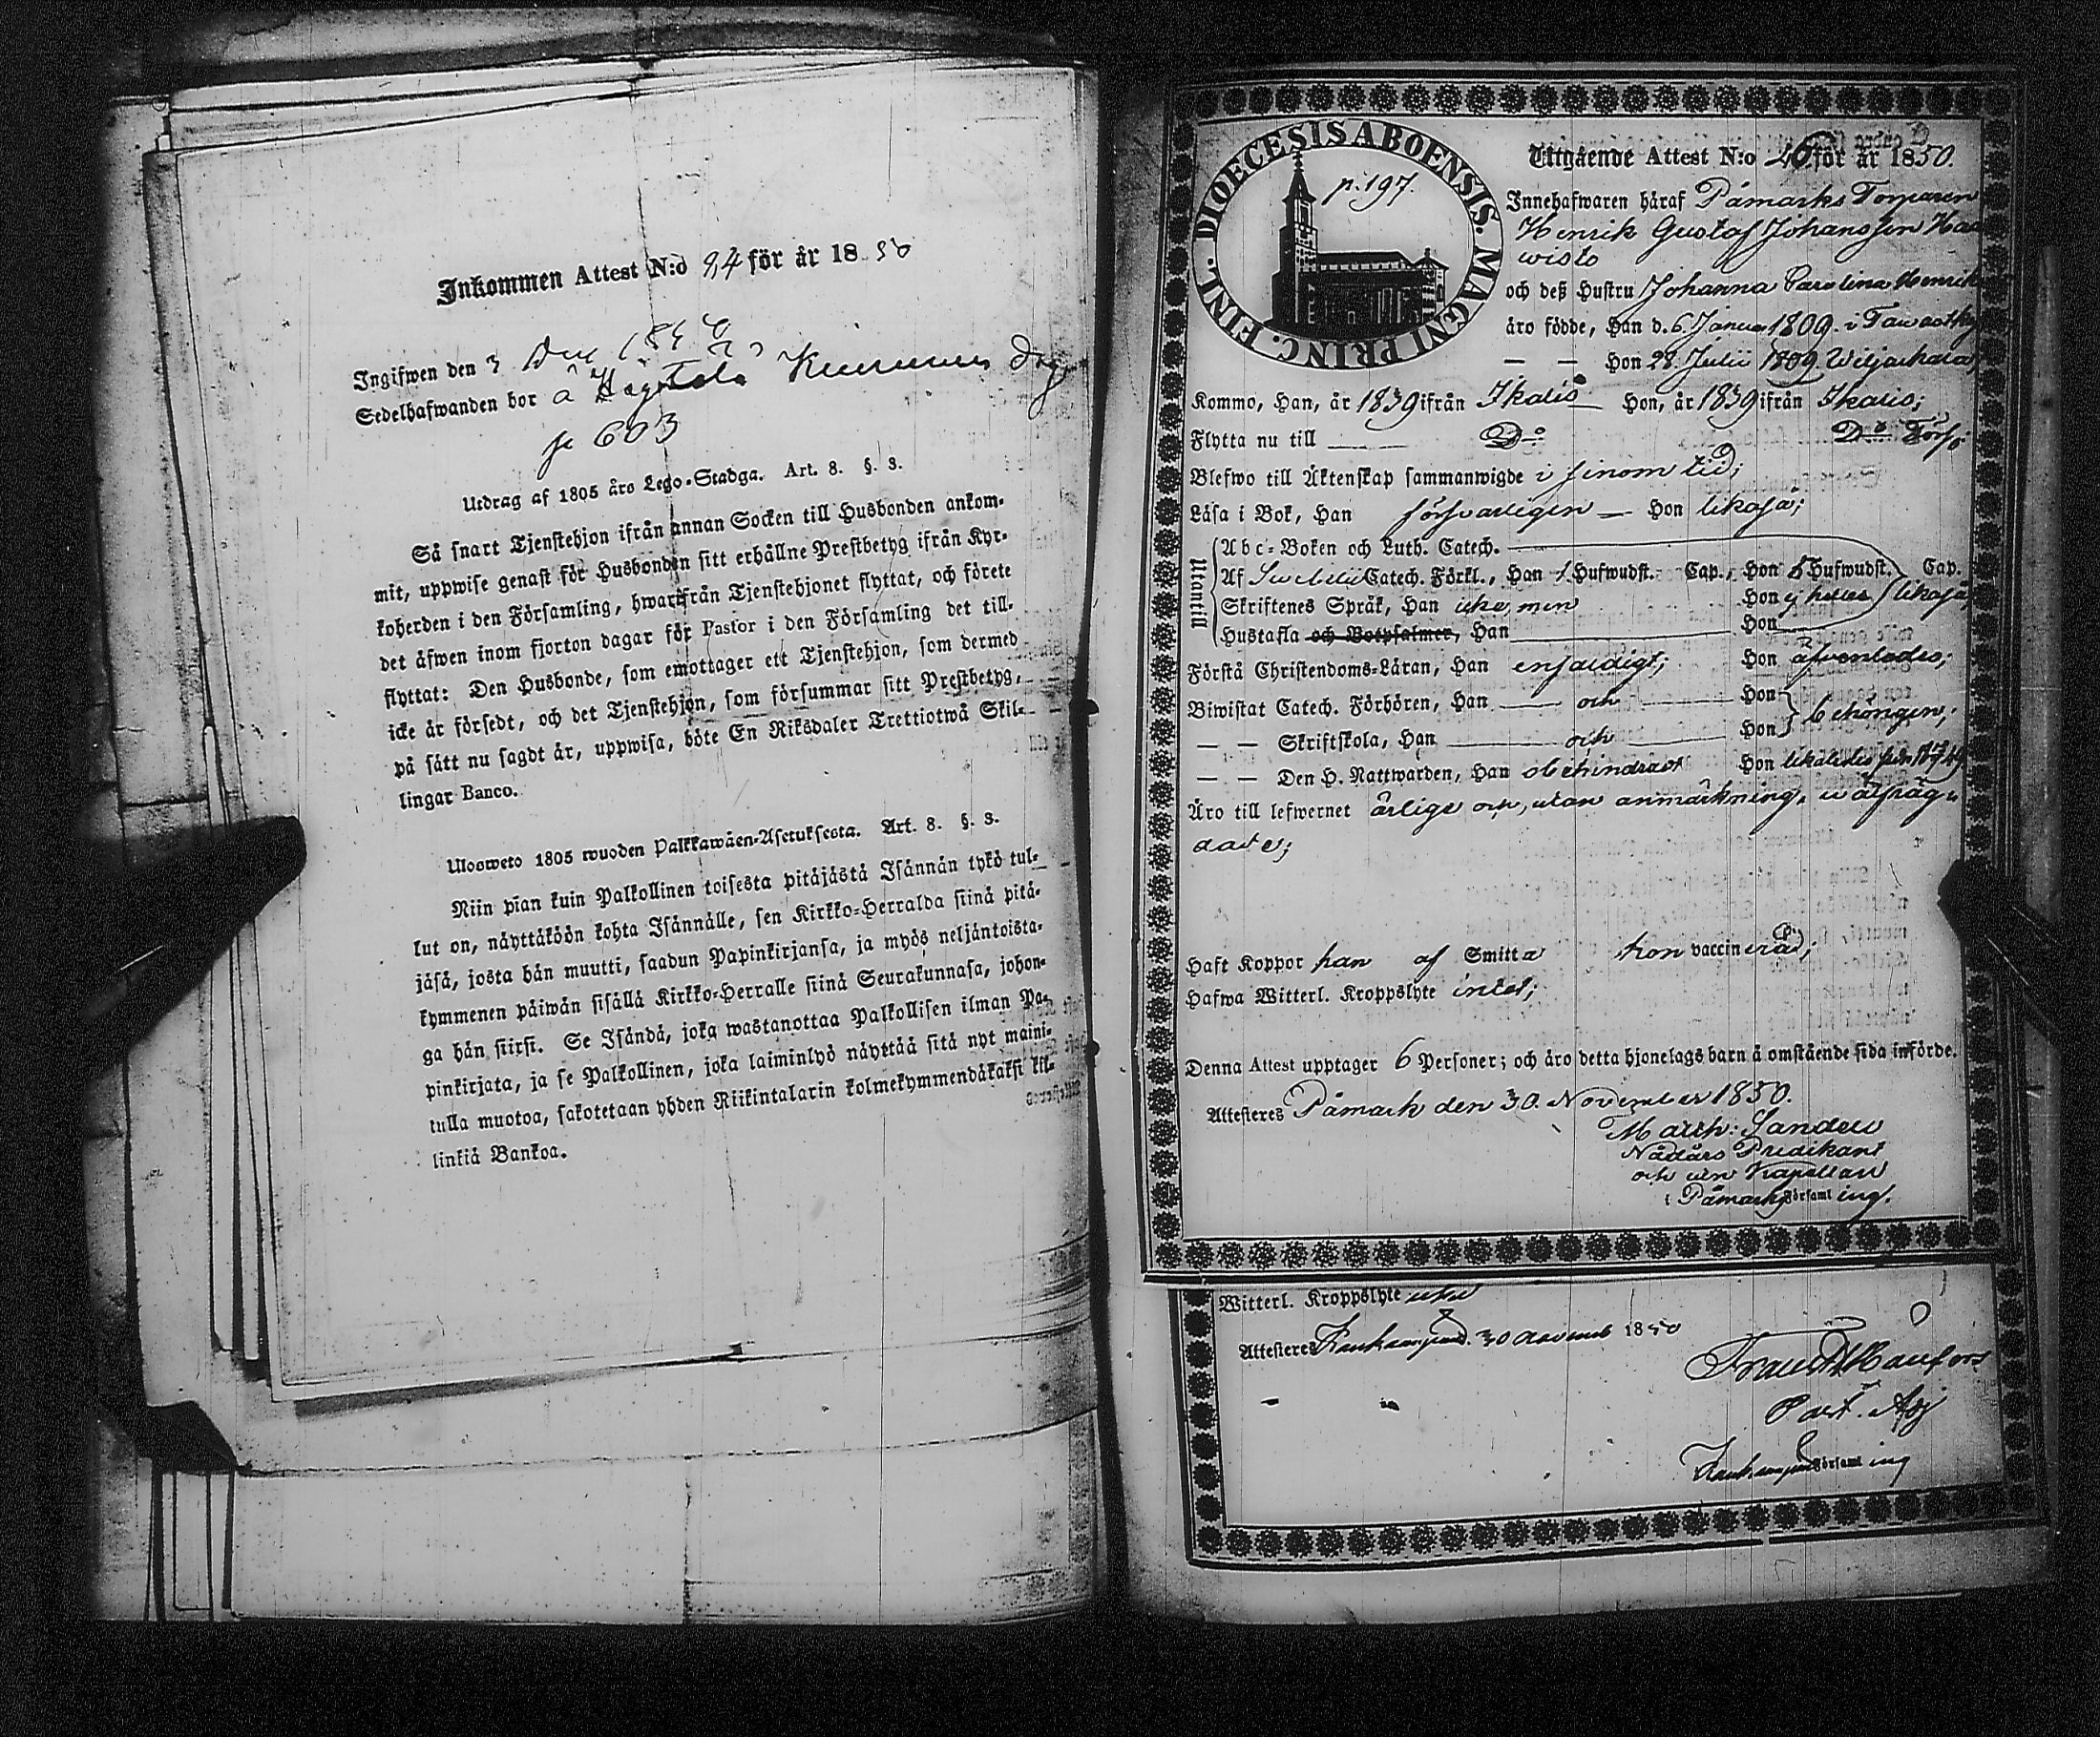 Inkommen Attest N:o 94 för år 1850
Ingifwen den 3 Dec 1850
Sedelhafwanden bor å
p 603
Utdrag af 1805 års Lego-Stadga. Art. 8. §. 3.
Så snart Tjenstehjon ifrån annan Socken till Husbonden ankom-
mit, uppwise genast för Husbonden sitt erhållne Prestbetyg ifrån Kyr-
koherden i den Församling, hwarifrån Tjenstehjonet flyttat, och förete
det äfwen inom fjorton dagar för Pastor i den Församling det till-
flyttat: Den Husbonde, som emottager ett Tjenstehjon, som dermed
icke är försedt, och det Tjenstehjon, som försummar sitt Prestbetyg,
på sätt nu sagdt är, uppwisa, böte En Riksdaler Trettiotwå Skil-
lingar Banco.
Ulosweto 1805 wuoden Palkkawäen-Asetuksesta. Art. 8. §. 3.
Niin pian kuin Palkollinen toisesta pitäjästä Isännän tykö tul-
lut on, näyttäköön kohta Isännälle, sen Kirkko-Herralda siinä pitä-
jäsä, josta hän muutti, saadun Papinkirjansa, ja myös neljäntoista-
kymmenen päiwän sisällä Kirkko-Herralle siinä Seurakunnasa, johon-
ga hän siirsi. Se Isändä, joka wastanottaa Palkollisen ilman Pa-
pinkirjata, ja se Palkollinen, joka laiminlyö näyttää sitä nyt maini-
tulla muotoa, sakotetaan yhden Riikintalarin kolmekymmendäkaksi kil-
linkiä Bankoa.
DIOECESIS ABOENSIS. MAGNI PRINC. FINL.
p. 197.
Utgående Attest N:o 26 för år 1850.
Innehafwaren häraf Påmarks Torparen
Henrik Gustaf Johansson Haa
wisto
och deß Hustru Johanna Carolina Henrik
äro födde, Han d. 6. Januar 1809. i
— — Hon 28. Julii 1809
Kommo, Han, år 1839 ifrån Ikalis — Hon, år 1839 ifrån Ikalis;
Flytta nu till —— Do Do
Blefwo till Äktenskap sammanwigde i sinom tid;
Läsa i Bok, Han försvarligen — Hon likaså;
Utantill
Abc-Boken och Luth. Catech.
Af Swebilii Catech. Förkl., Han 1. Hufwudst. Cap., Hon 5 Hufwudst. Cap.
Skriftenes Språk, Han icke, men Hon ej heller likaså
Hustafla och Botpsalmer, Han Hon
Förstå Christendoms-Läran, Han enfaldigt; Hon äfvenledes;
Biwistat Catech. Förhören, Han — och — Hon
— — Skriftskola, Han — och — Hon behörigen;
— — Den H. Nattwarden, Han obehindradt Hon likaledes
Äro till lefwernet ärlige och, utan anmärkning,
Haft Koppor han af Smitta hon vaccinerad;
Hafwa Witterl. Kroppslyte intet;
Denna Attest upptager 6 Personer; och äro detta hjonelags barn å omstående sida införde.
Attesteres Påmark den 30. November 1850.
Matth: Sandell
Nådårs Predikant
och Kapellan
i Påmarks Församling.
Witterl. Kroppslyte
Attesteres 30 novemb 1850
Församling